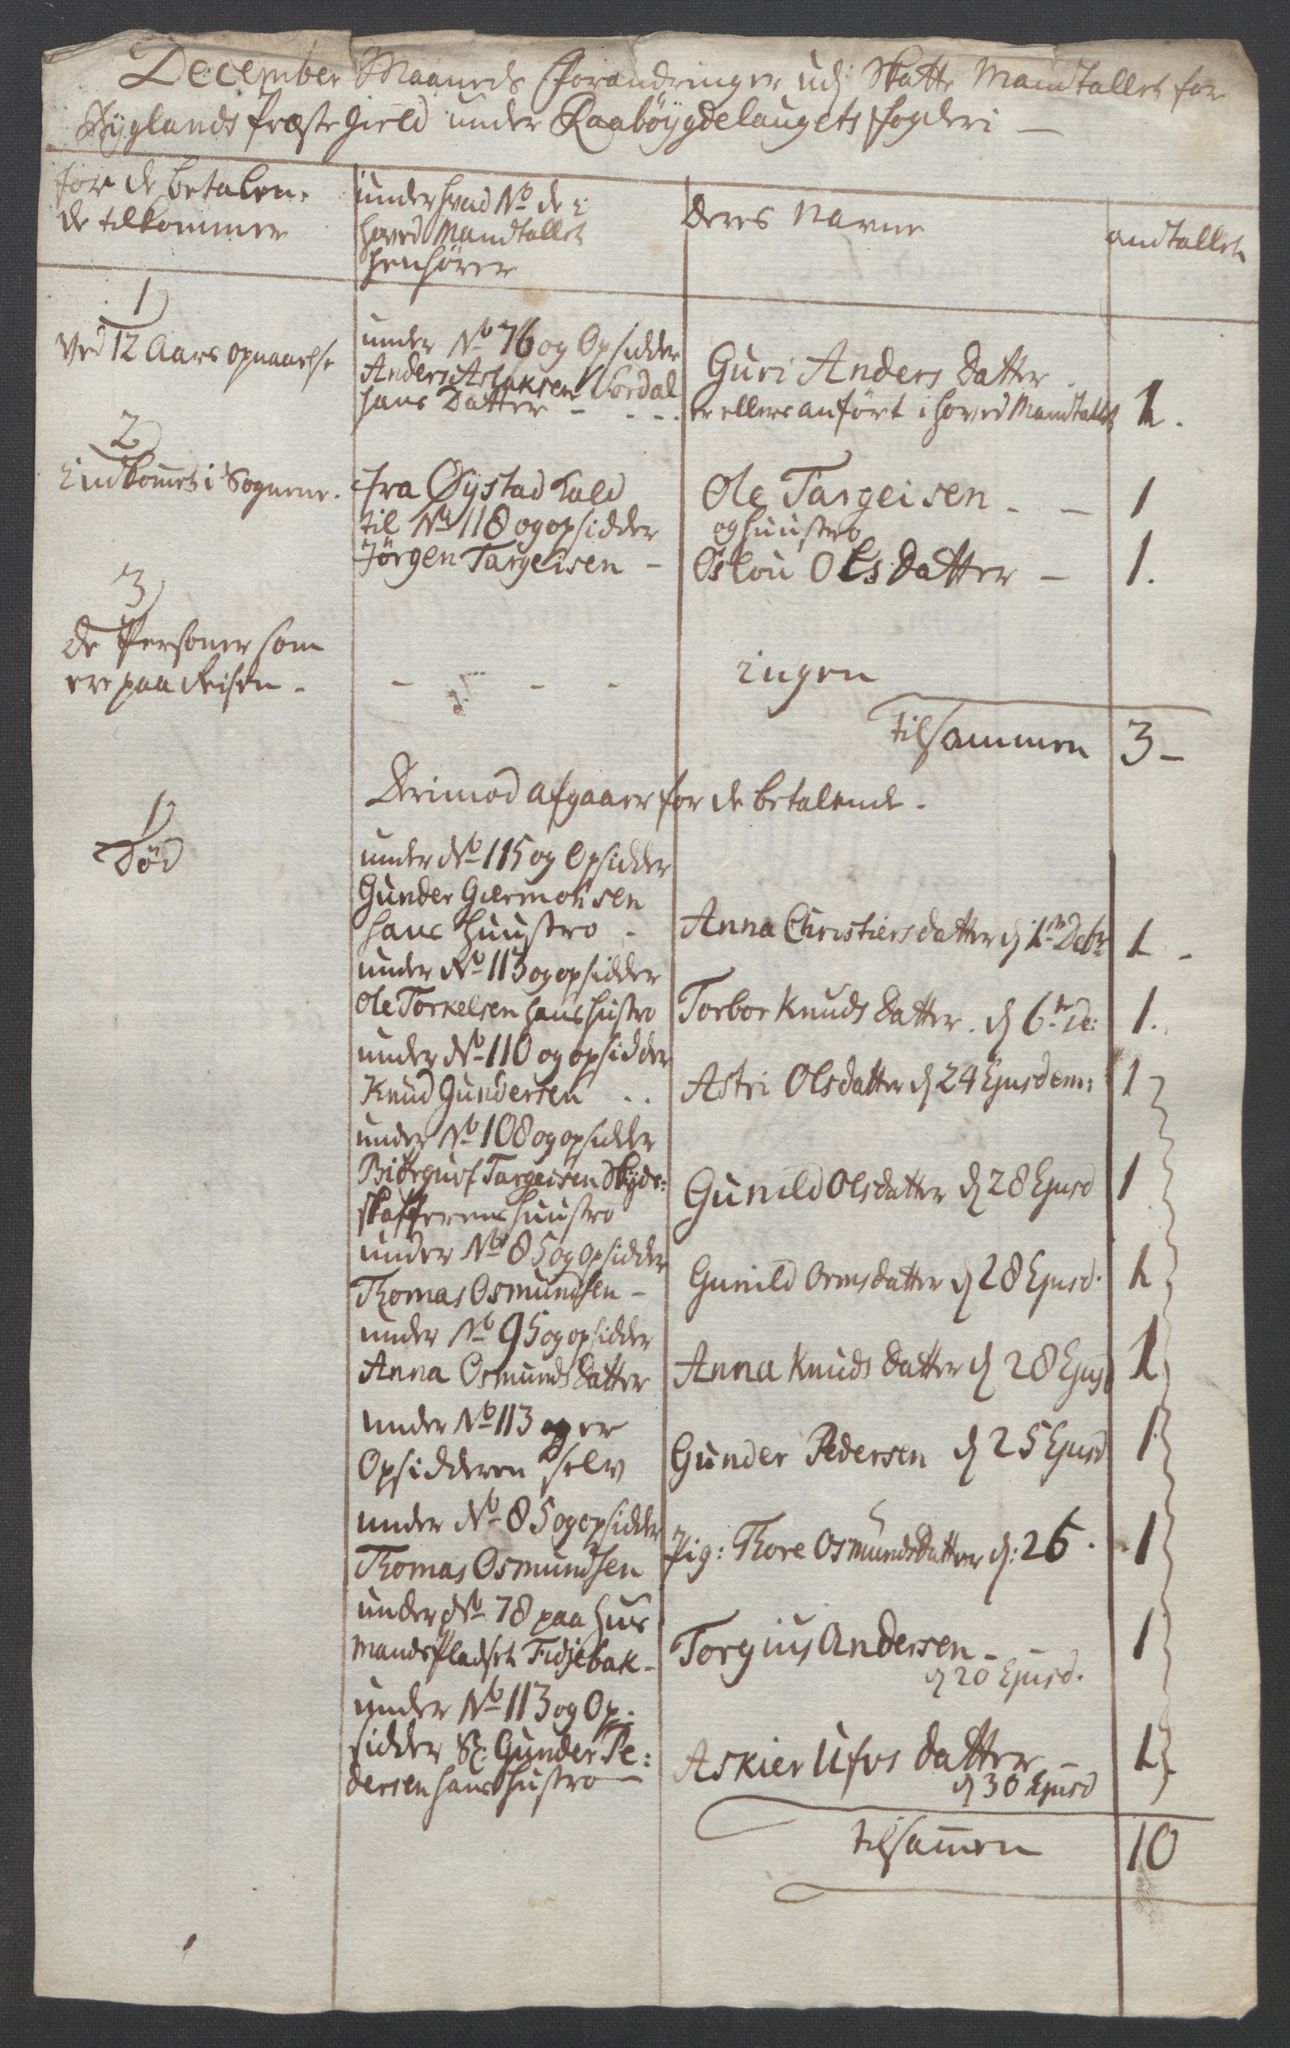 December Maaneds Forandringer udj Skatte Mandtallet for
Byglands Præste Gield under Raabøygdelaugets Fogderi
for de betalen-
de tilkommer
under hvad No de i
hoved Mandtallet
henhører
Deres Navne
andtallet
1
ved 12 Aars opnaaelse
under No 76 og Opsidder
Anders Aslaksen Vordal
hans Datter
Guri Anders Datter
er ellers anført i hoved Mandtallet
1.
2
indkommet i Sognene.
fra Øystad Kald
til No 118 og opsidder
Jörgen Targeisen
Ole Targeisen
1
og huustro
Oslou Olsdatter
1.
3
de Personer som
ere paa Reisen.
ingen
tilsammen 3
Derimod afgaaer for de betalende.
1
Død
under No 115 og Opsidder
Gunder Giermonsen
hans Huustro
Anna Christiersdatter d 1te Debr
1
under No 113 og opsidder
Ole Torkelsen hans hustro
Torbor Knuds Datter d 6te De:
1.
under No 110 og opsidder
Knud Gundersen
Astri Olsdatter d 24 Ejusdem:
1
under No 108 og opsidder
Biörguof Targeisen Skyds:
skafferens huustro
Gunild Olsdatter d 28 Ejusd
1
under No 85 og Opsidder
Thomas Osmundsen
Gunild Ormsdatter d 28 Ejusd.
1
under No 95 og opsidder
Anna Osmunds Datter
Anna Knuds Datter d 28 Ejusd
1
under No 113 og er
Opsidderen selv
Gunder Pedersen d 25 Ejusd
1
under No 85 og opsidder
Thomas Osmundsen
Pig: Thore Osmunds Datter d: 26.
1
under No 78 paa Hus
mands Pladset Fidjebak
Torgius Andersen
d 20 Ejusd.
1
under No 113 og Op-
sidder Sr. Gunder Pe:
dersen hans hustro
Askier Ufvs datter
d 30 Ejusd
1
tilsamen 10